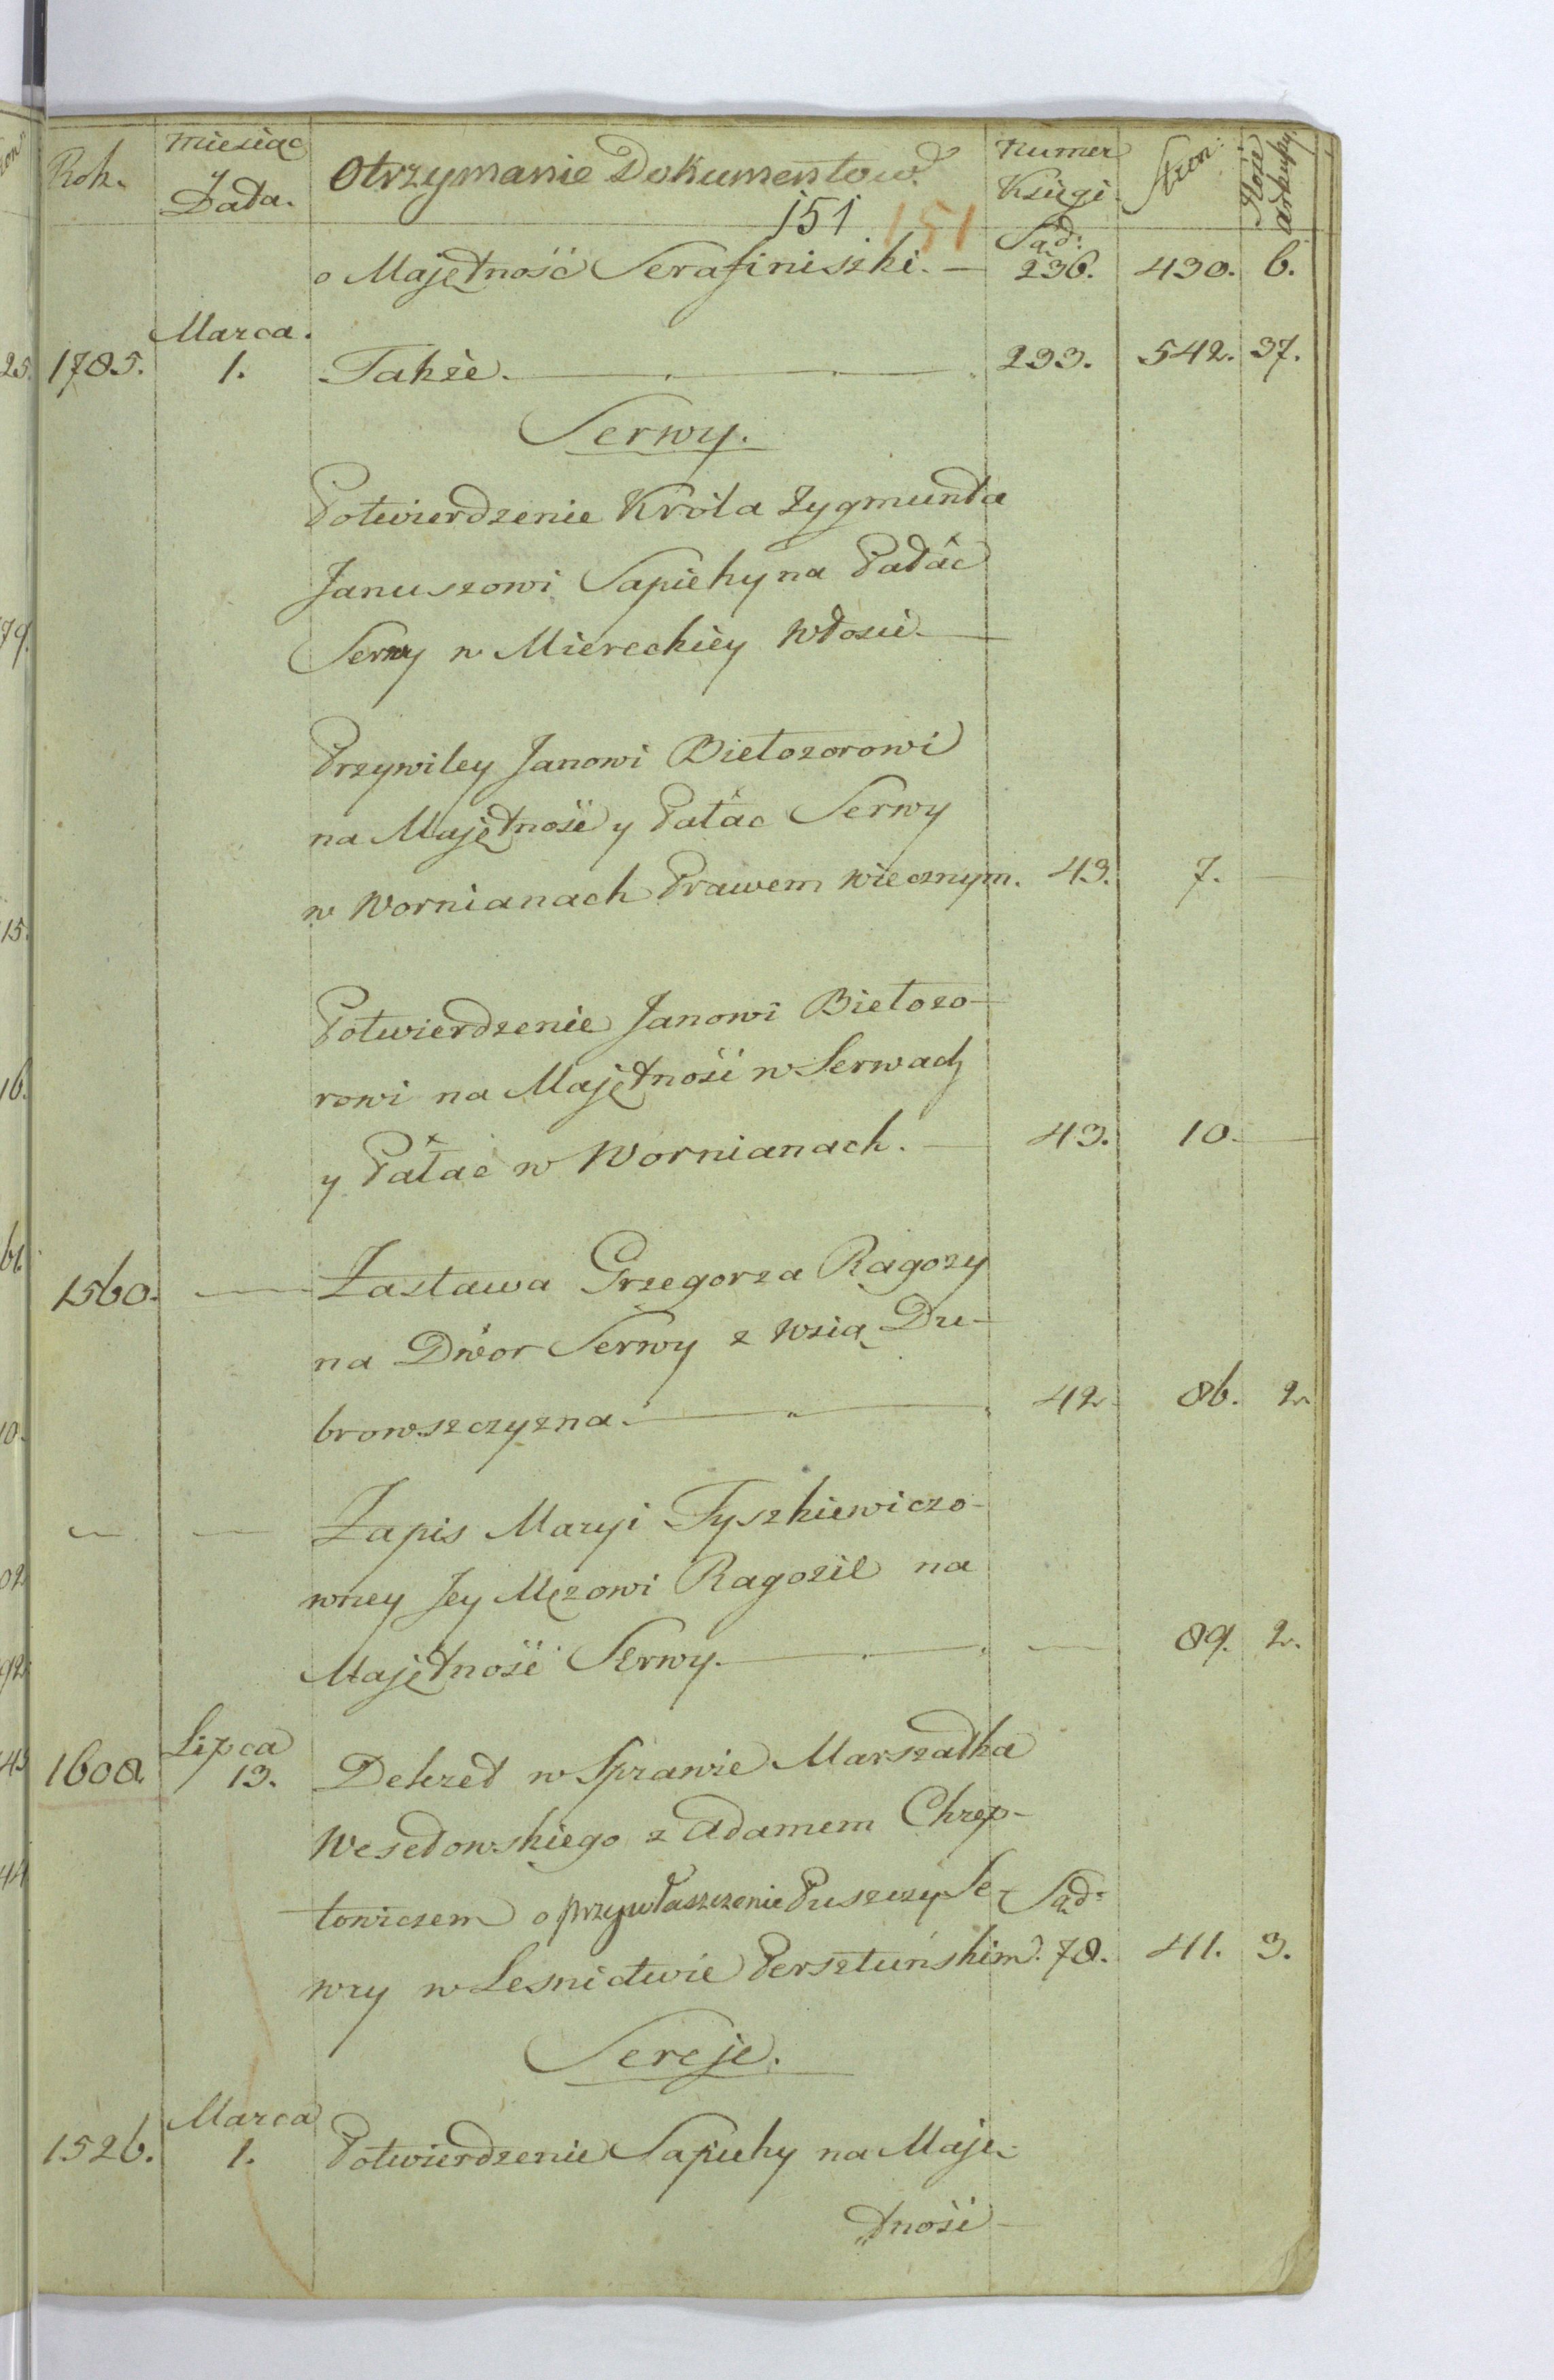 Rok. Miesiąc y Data. Otrzymanie Dokumentow. Numer Księgi Stron: Ilość arkuszy.
151 151
o Majętność Serafiniszki. — Sąd: 236. 430. 6.
1785. Marca. 1. Także. — 233. 542. 37.
Serwy.
Potwierdzenie Króla Zygmunta
Januszowi Sapiehy na Pałác
Serwy w Miereckiey Włości —
Przywiley Janowi Biełozorowi
na Majętność y Pałác Serwy
w Wornianach Prawem wiecznym. 43. 7. —
Potwierdzenie Janowi Biełozo-
rowi na Majętność w Serwach
y Pałac w Wornianach. — 43. 10. —
1560. — Zastawa Grzegorza Ragozy
na Dwór Serwy z Wsią Du-
browszczyzna. — 42 86. 2.
— — Zapis Maryi Tyszkiewiczo-
wney Jey Mężowi Ragozie na
Majętność Serwy. — — 89. 2.
1608. Lipca 13. Dekret w Sprawie Marszałka
Wesełowskiego z Adamem Chrep-
towiczem o przywłaszczenie Puszczy Se-
wry w Lesnictwie Persztuńskim. Sąd: 78. 41. 3.
Sereje.
1526. Marca 1. Potwierdzenie Sapiehy na Maję-
tność —